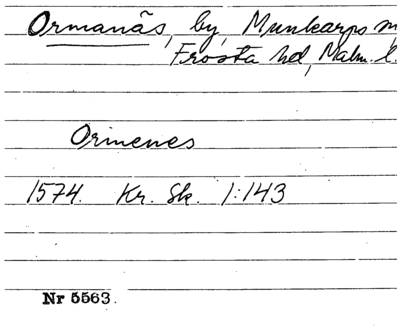 Ormanäs, by, Munkarps
Frosta hd, Malm. l.
Ormenes
1574. Kr. Sk. 1:143
Nr 5563.